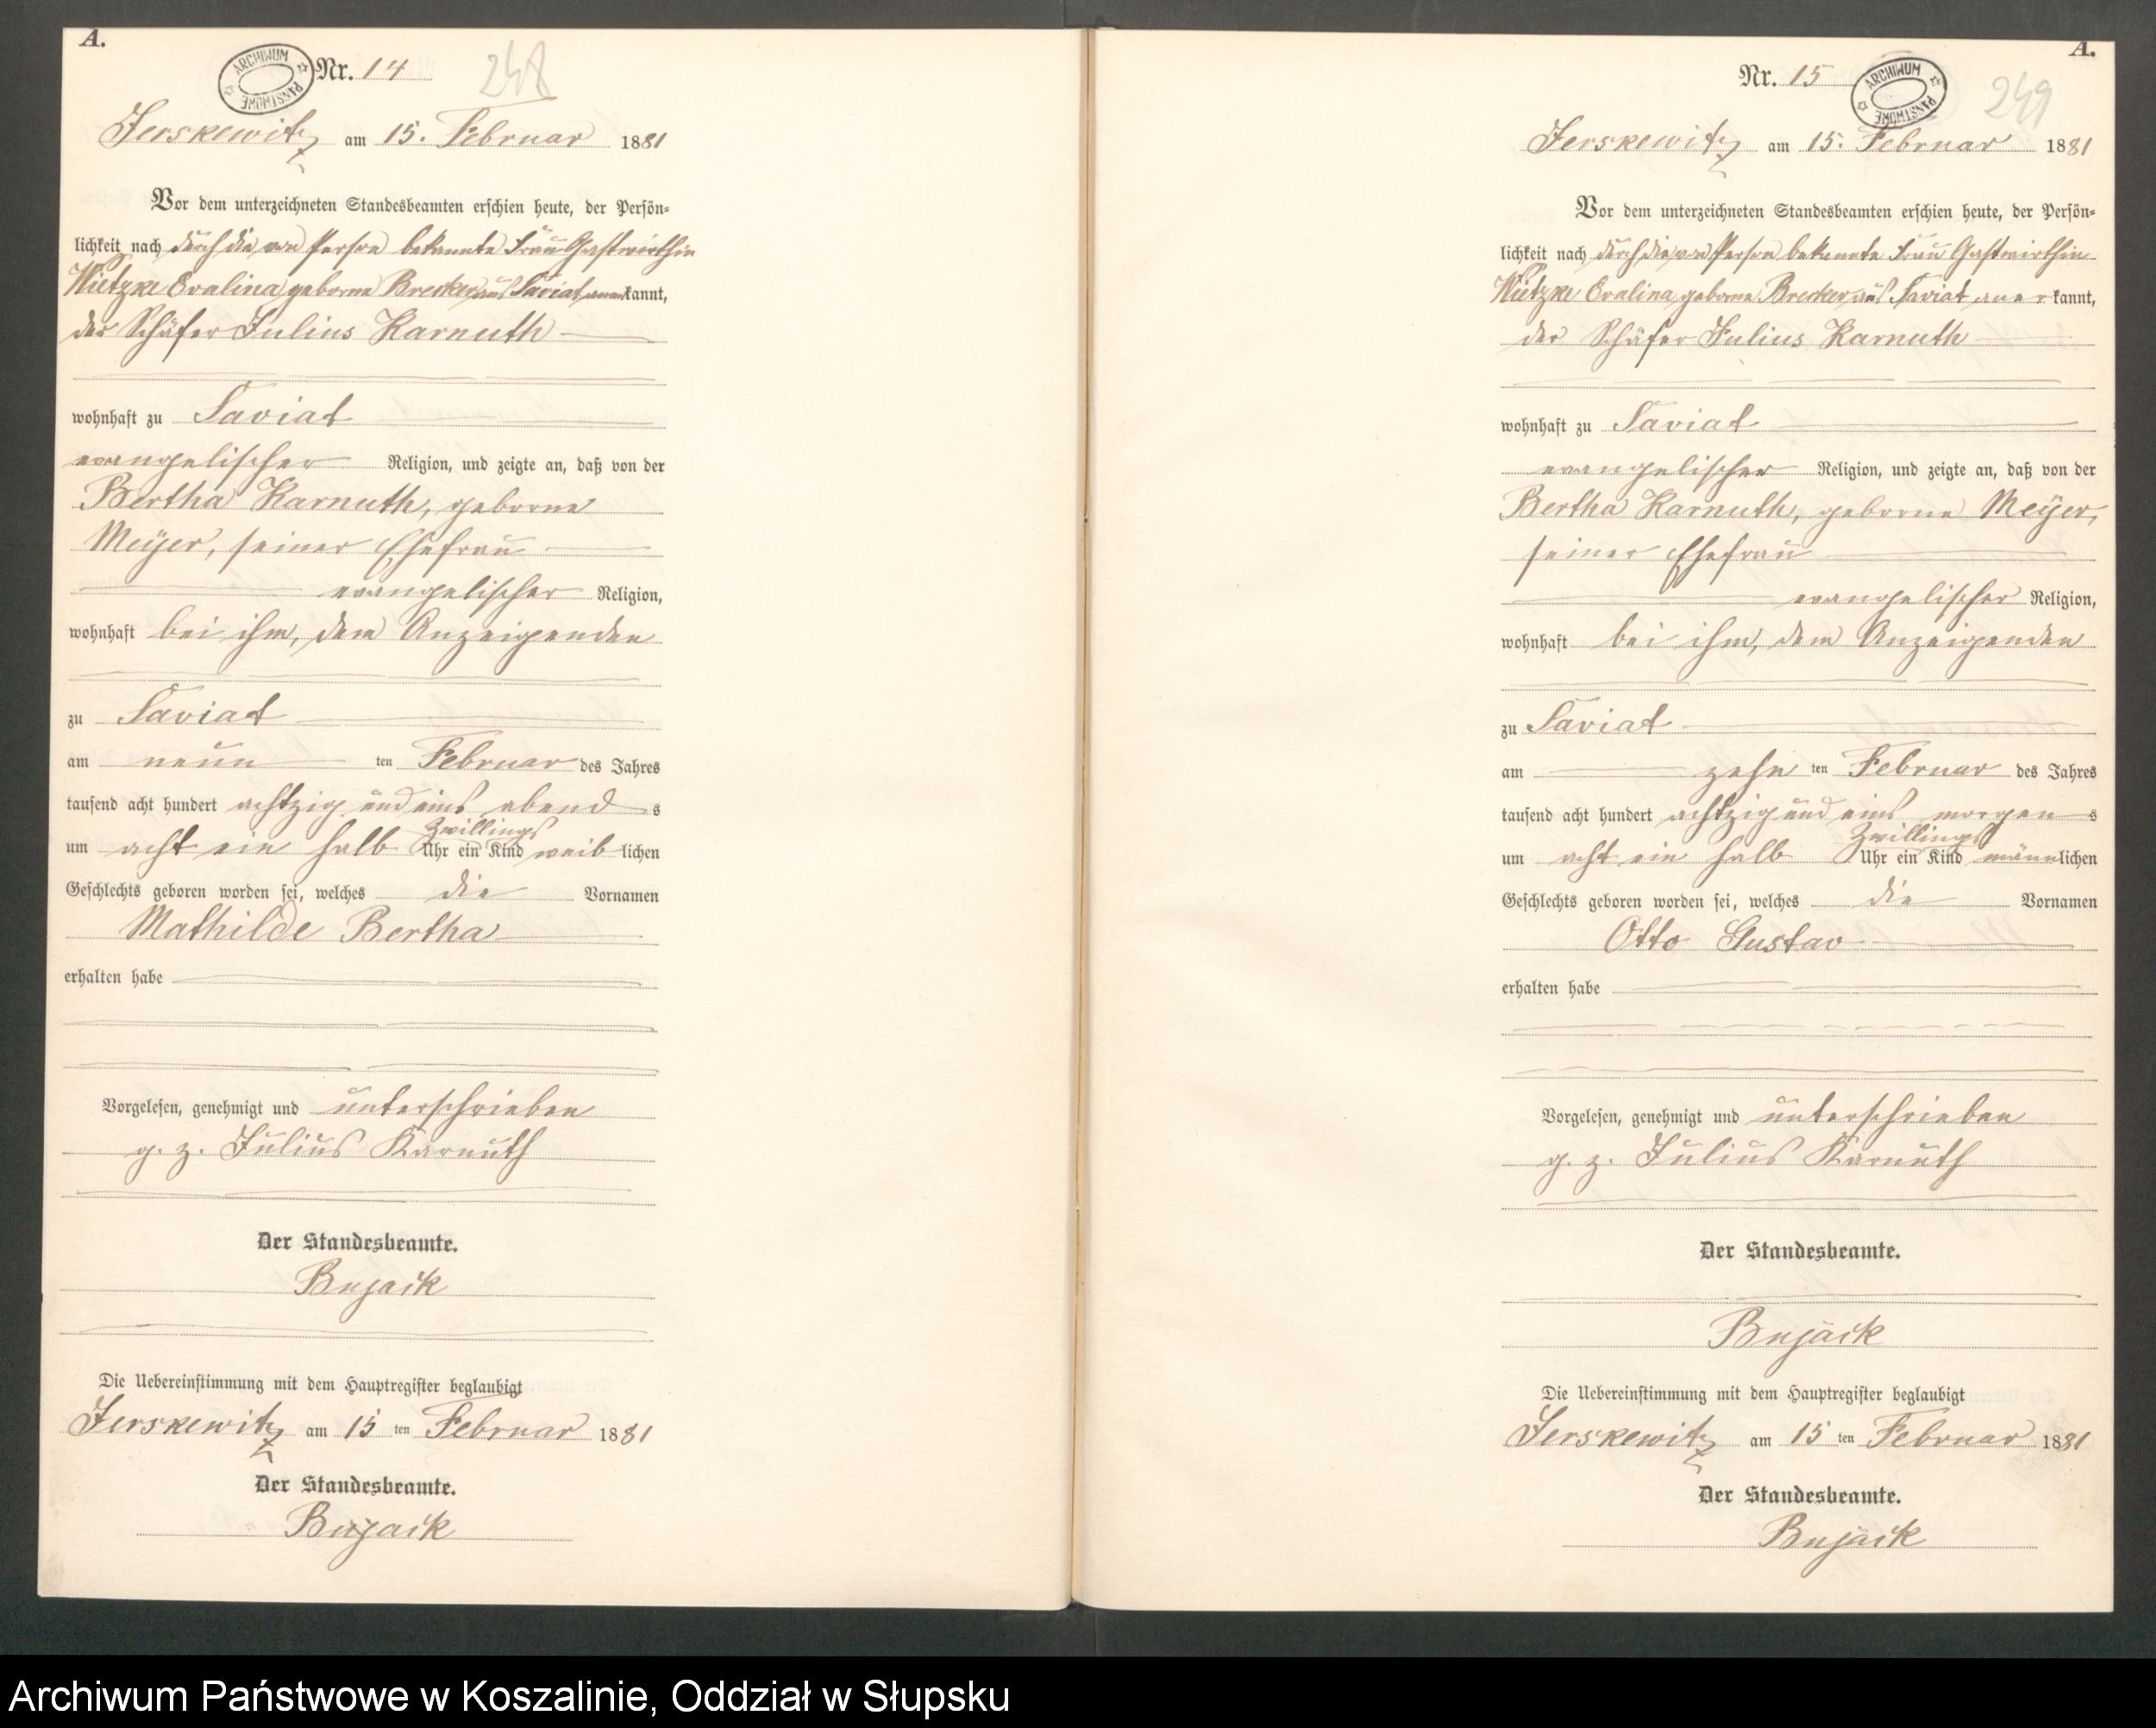 A.
ARCHIWUM PAŃSTWOWE
Nr. 14
248
Jerskewitz am 15. Februar 1881
Vor dem unterzeichneten Standesbeamten erschien heute, der Persön-
lichkeit nach durch die von Person bekannte Frau Gastwirthin
Wietzke Evalina geborne Brecker aus Saviat anerkannt,
der Schäfer Julius Karnuth
wohnhaft zu Saviat
evangelischer Religion, und zeigte an, daß von der
Bertha Karnuth, geborne
Meÿer, seiner Ehefrau
evangelischer Religion,
wohnhaft bei ihm, dem Anzeigenden
zu Saviat
am neun ten Februar des Jahres
tausend acht hundert achtzig und eins abend s
Zwillings
um acht ein halb Uhr ein Kind weib lichen
Geschlechts geboren worden sei, welches die Vornamen
Mathilde Bertha
erhalten habe
Vorgelesen, genehmigt und unterschrieben
g. z. Julius Karnuth
Der Standesbeamte.
Bujack
Die Uebereinstimmung mit dem Hauptregister beglaubigt
Jerskewitz am 15 ten Februar 1881
Der Standesbeamte.
Bujack
A.
Nr. 15
ARCHIWUM PAŃSTWOWE
249
Jerskewitz am 15. Februar 1881
Vor dem unterzeichneten Standesbeamten erschien heute, der Persön-
lichkeit nach durch die von Person bekannte Frau Gastwirthin
Wietzke Evalina geborne Brecker aus Saviat aner kannt,
der Schäfer Julius Karnuth
wohnhaft zu Saviat
evangelischer Religion, und zeigte an, daß von der
Bertha Karnuth, geborne Meÿer,
seiner Ehefrau
evangelischer Religion,
wohnhaft bei ihm, dem Anzeigenden
zu Saviat
am zehn ten Februar des Jahres
tausend acht hundert achtzig und eins morgen s
Zwillings
um acht ein halb Uhr ein Kind männlichen
Geschlechts geboren worden sei, welches die Vornamen
Otto Gustav
erhalten habe
Vorgelesen, genehmigt und unterschrieben
g. z. Julius Karnuth
Der Standesbeamte.
Bujack
Die Uebereinstimmung mit dem Hauptregister beglaubigt
Jerskewitz am 15 ten Februar 1881
Der Standesbeamte.
Bujack
Archiwum Państwowe w Koszalinie, Oddział w Słupsku